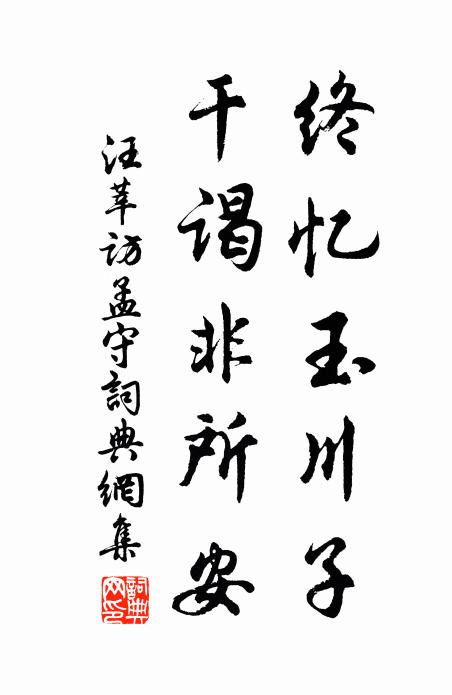 终忆玉川子
干谒非所安
汪莘访孟守詞典網集
詞典网印